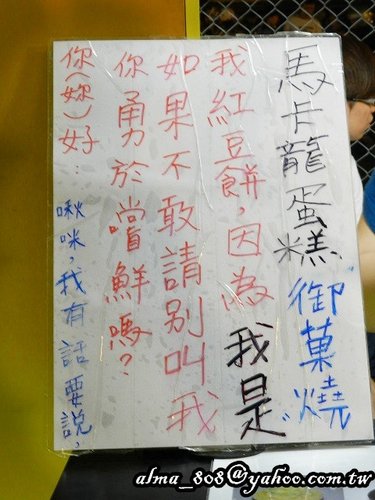 你(妳)好：啾咪，我有話要說，
你勇於嚐鮮嗎？
如果不敢請別叫我
我紅豆餅，因為我是
馬卡龍蛋糕御菓燒
alma_808@yahoo.com.tw